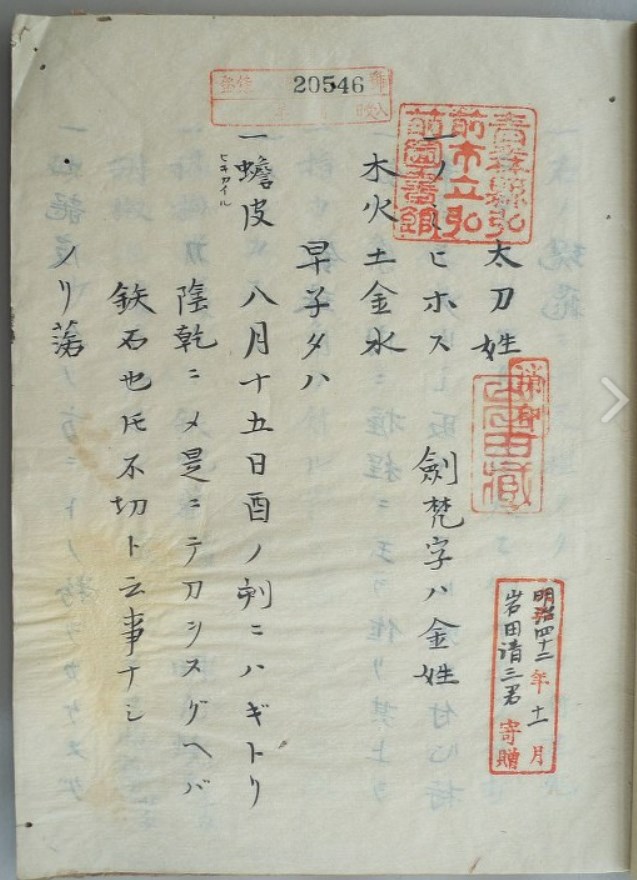 20546
青森縣弘
前市立弘
前圖書館
太刀姓
ヒホス 劍梵字ハ金姓
木火土金水
早子タハ
一蟾皮 八月十五日酉ノ刻ニハギトリ
ヒキカイル
陰乾ニメ是ニテ刀ヲヌグヘバ
鉄石也𪜈不切ト云事ナシ
ノリ
消印
明治四十二年十一月
岩田清三君寄贈